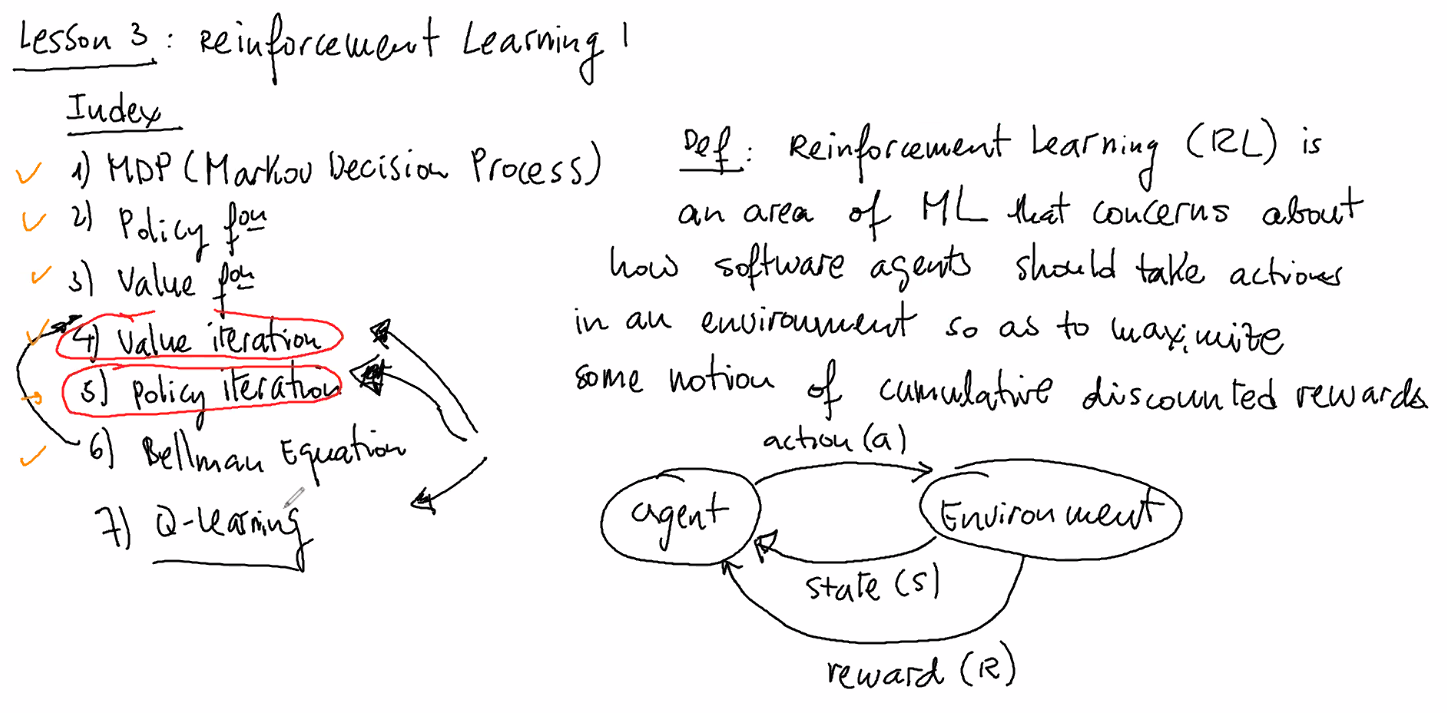 Lesson 3 : Reinforcement Learning 1
Index
1) MDP (Markov Decision Process)
2) Policy fon
3) Value fon
4) Value iteration
5) Policy iteration
6) Bellman Equation
7) Q-Learning
Def : Reinforcement Learning (RL) is
an area of ML that concerns about
how software agents should take actions
in an environment so as to maximize
some notion of cumulative discounted rewards
action (a)
agent
Environment
state (s)
reward (R)